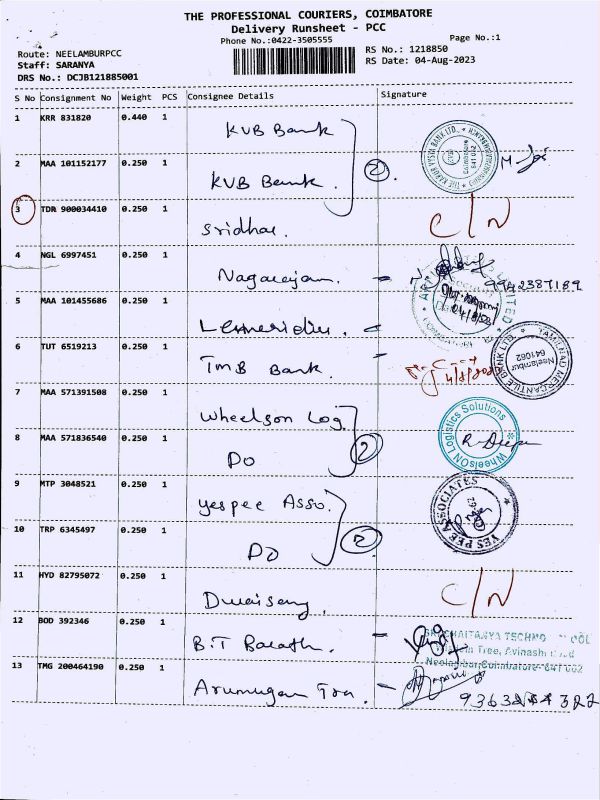 THE PROFESSIONAL COURIERS, COIMBATORE
Delivery Runsheet - PCC
Phone No.:0422-3505555
Page No.:1
Route: NEELAMBURPCC
RS No.: 1218850
Staff: SARANYA
RS Date: 04-Aug-2023
DRS No.: DCJB121885001
S No Consignment No Weight PCS Consignee Details Signature
1 KRR 831820 0.440 1 KVB Bank
2 MAA 101152177 0.250 1 KVB Bank. 2.
3 TDR 900034410 0.250 1 Sridhar. C/N
4 NGL 6997451 0.250 1 Nagarajan. 9942387189
5 MAA 101455686 0.250 1 Lemeridien.
6 TUT 6519213 0.250 1 TMB Bank.
TAMILNAD MERCANTILE BANK LTD.
Neelambur
641062
7 MAA 571391508 0.250 1 Wheelson Log.
8 MAA 571836540 0.250 1 Do 2
WheelSON Logistics Solutions
9 MTP 3048521 0.250 1 Yespee Asso.
YES PEE ASSOCIATES
10 TRP 6345497 0.250 1 Do 2
11 HYD 82795072 0.250 1 C/N
12 BOD 392346 0.250 1 B.T Barath.
CHAITANYA TECHNO
Tree, Avinashi
Neelambur, Coimbatore- 641 062
13 TMG 200464190 0.250 1 Arumugam Tra.